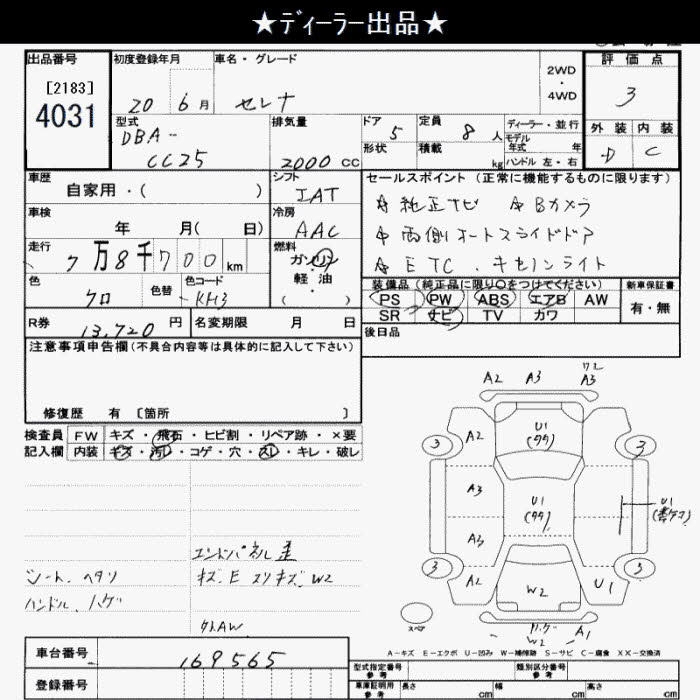 ★ディーラー出品★
出品番号
[2183]
4031
初度登録年月
20年6月
車名・グレード
セレナ
2WD
・
4WD
評価点
3
型式
DBA-
CC25
排気量
2000cc
ドア
5
形状
定員
8人
積載
kg
ディーラー・並行
モデル
年式 年
ハンドル 左・右
外装 内装
D C
車歴
自家用・( )
シフト
IAT
セールスポイント(正常に機能するものに限ります)
☆純正ナビ ☆Bカメラ
☆両側オートスライドドア
☆ETC.キセノンライト
車検
年 月( 日)
冷房
AAC
走行
7万8千700km
燃料
ガソリン
軽油
・( )
色
クロ
色替
色コード
KH3
装備品(純正品に限り○をつけてください)
PS PW ABS エアB AW
SR ナビ TV カワ
新車保証書
有・無
R券
13,720円
名変期限 月 日
後日品
注意事項申告欄(不具合内容等は具体的に記入して下さい)
修復歴 有 〔箇所 〕
検査員
記入欄
FW キズ・飛石・ヒビ割・リペア跡・×要
内装 キズ・汚レ・コゲ・穴・スレ・キレ・破レ
エンドパネル歪
シート.ヘタリ
キズ.E スリキズ.W2
ハンドル.ハゲ
外AW
A2 A3 ワレ A3
3 A2 U1 3
A3 U1
U1
A3
3 A2 W2 U1 5
スペア
ハゲ W2 A1
A-キズ E-エクボ U-凹み W-補修跡 S-サビ C-腐食 XX-交換済
車台番号
169565
登録番号
型式指定番号
参考
類別区分番号
参考
車庫証明用
参考
長さ cm
幅 cm
高さ cm